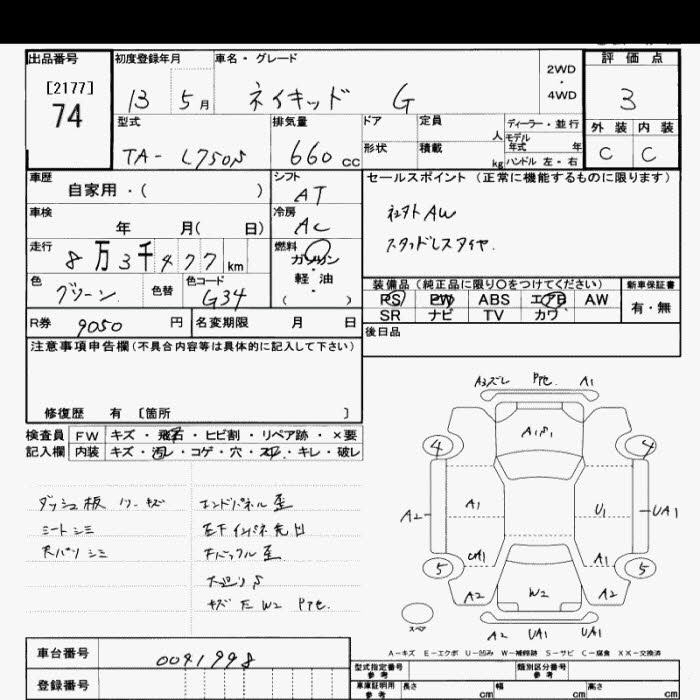 出品番号 初度登録年月 車名・グレード 2WD・4WD 評価点
[2177]
74 13 5月 ネイキッド G 3
型式 排気量 ドア 定員 人 ディーラー・並行 外装 内装
TA-L750S 660 CC 形状 積載 kg モデル年式 年 ハンドル 左・右 C C
車歴 自家用・( ) シフト AT セールスポイント (正常に機能するものに限ります)
車検 年 月( 日) 冷房 AC 社外AW
走行 8万3千477km 燃料 ガソリン・軽油 ( ) スタッドレスタイヤ.
色 グリーン 色替 色コード G34 装備品 (純正品に限り〇をつけてください) 新車保証書
PS PW ABS エアB AW 有・無
SR ナビ TV カワ
R券 9050 円 名変期限 月 日 後日品
注意事項申告欄 (不具合内容等は具体的に記入して下さい)
修復歴 有 〔箇所 〕
検査員 FW キズ・飛石・ヒビ割・リペア跡・×要
記入欄 内装 キズ・汚レ・コゲ・穴・スレ・キレ・破レ
ダッシュ板 ワレ キズ エンドパネル歪
シートシミ
天バリシミ
キズ 凹 W2 Pte.
A3ズレ Pte. A1
A1S1
4 4
A2 A1 U1 UA1
UA1 A1
5 5
A2 W2 A2
スペア
A2 UA1 UA1
A-キズ E-エクボ U-凹み W-補修跡 S-サビ C-腐食 XX-交換済
車台番号 0041998
登録番号
型式指定番号 参考 類別区分番号 参考
車庫証明用 参考 長さ cm 幅 cm 高さ cm